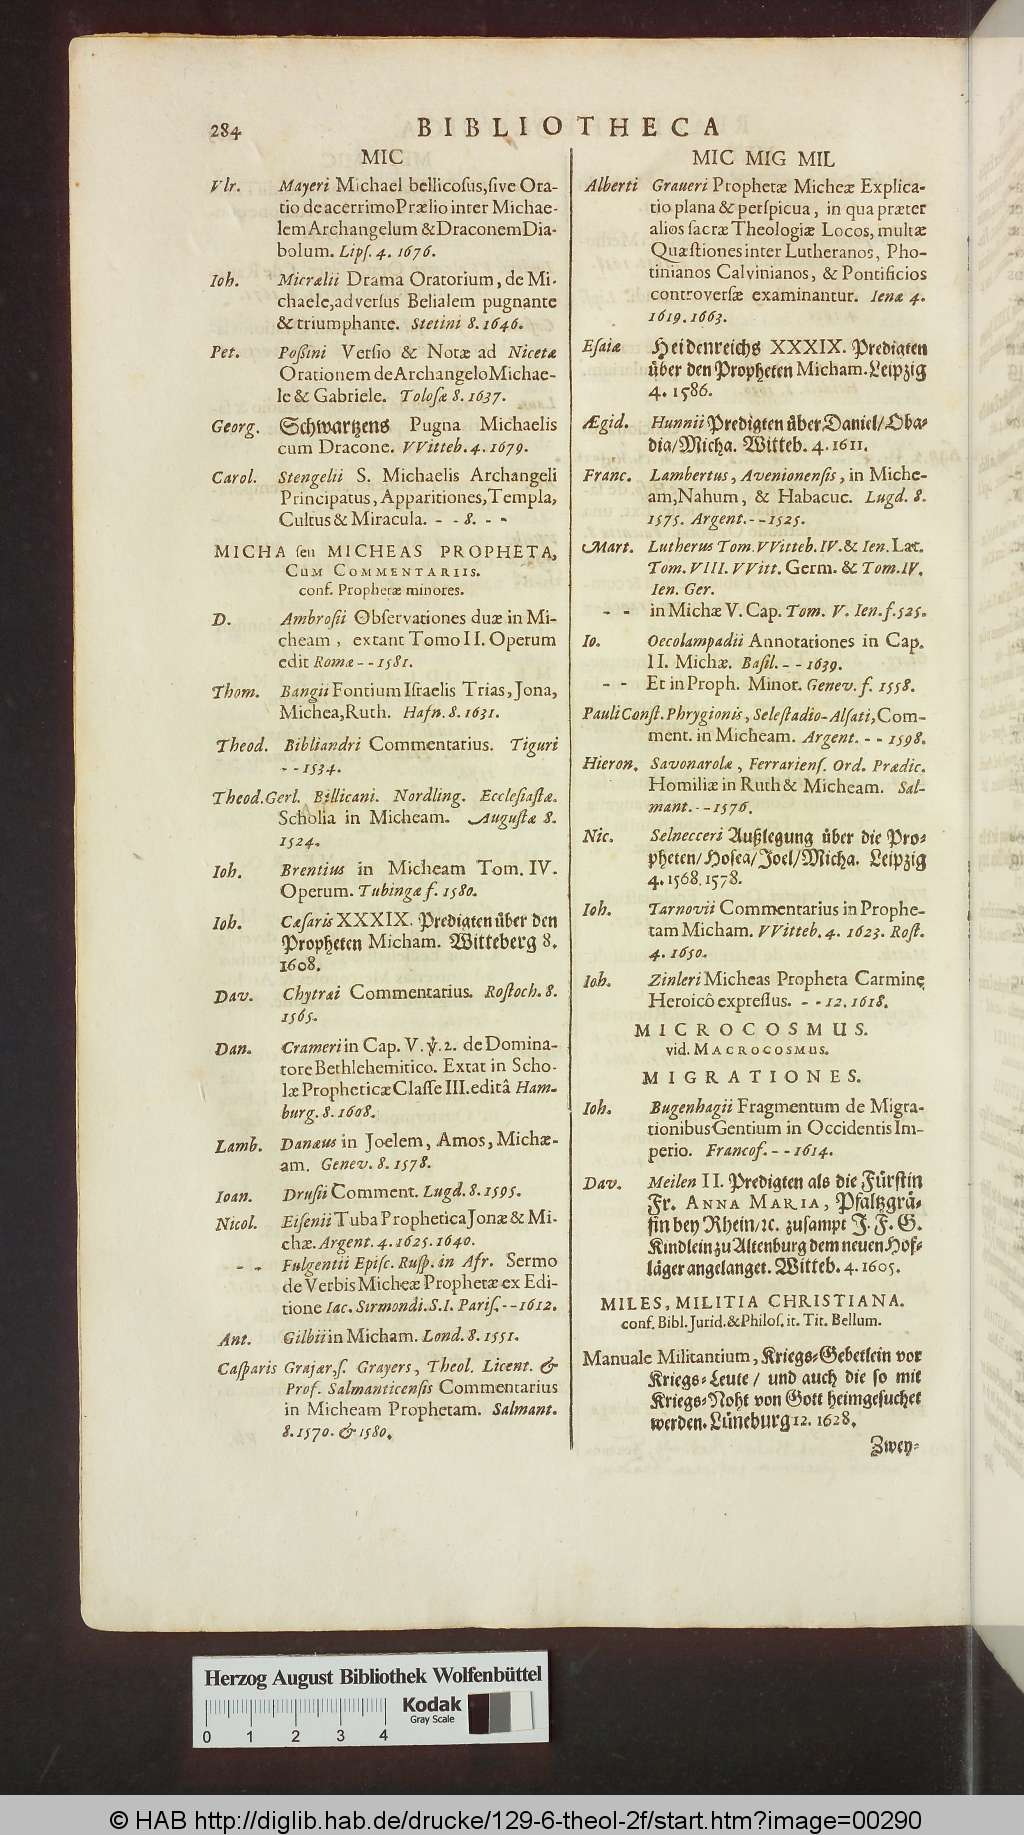 284 BIBLIOTHECA
MIC
Vlr. Mayeri Michael bellicoſus,ſive Ora-
tio de acerrimo Prælio inter Michae-
lem Archangelum & Draconem Dia-
bolum. Lipſ. 4. 1676.
Ioh. Micrælii Drama Oratorium, de Mi-
chaele,adverſus Belialem pugnante
& triumphante. Stetini 8. 1646.
Pet. Poßini Verſio & Notæ ad Nicetæ
Orationem de Archangelo Michae-
le & Gabriele. Toloſæ 8. 1637.
Georg. Schwartzens Pugna Michaelis
cum Dracone. VVitteb. 4. 1679.
Carol. Stengelii S. Michaelis Archangeli
Principatus, Apparitiones, Templa,
Cultus & Miracula. - - 8. - -
MICHA ſeu MICHEAS PROPHETA,
CUM COMMENTARIIS.
conf. Prophetæ minores.
D. Ambroſii Obſervationes duæ in Mi-
cheam, extant Tomo II. Operum
edit Romæ - - 1581.
Thom. Bangii Fontium Iſraelis Trias, Jona,
Michea, Ruth. Hafn. 8. 1631.
Theod. Bibliandri Commentarius. Tiguri
- - 1534.
Theod. Gerl. Billicani. Nordling. Eccleſiaſtæ.
Scholia in Micheam. Auguſtæ 8.
1524.
Ioh. Brentius in Micheam Tom. IV.
Operum. Tubingæ f. 1580.
Ioh. Cæſaris XXXIX. Predigten über den
Propheten Micham. Witteberg 8.
1608.
Dav. Chytræi Commentarius. Roſtoch. 8.
1565.
Dan. Crameri in Cap. V. ꝟ. 2. de Domina-
tore Bethlehemitico. Extat in Scho-
læ Propheticæ Claſſe III. editâ Ham-
burg. 8. 1608.
Lamb. Danæus in Joelem, Amos, Michæ-
am. Genev. 8. 1578.
Ioan. Druſii Comment. Lugd. 8. 1595.
Nicol. Eiſenii Tuba Prophetica Jonæ & Mi-
chæ. Argent. 4. 1625. 1640.
- - Fulgentii Epiſc. Ruſp. in Afr. Sermo
de Verbis Micheæ Prophetæ ex Edi-
tione Iac. Sirmondi. S.I. Pariſ. - - 1612.
Ant. Gilbii in Micham. Lond. 8. 1551.
Caſparis Grajær, ſ. Grayers, Theol. Licent. &
Prof. Salmanticenſis Commentarius
in Micheam Prophetam. Salmant.
8. 1570. & 1580.
MIC MIG MIL
Alberti Graueri Prophetæ Micheæ Explica-
tio plana & perſpicua, in qua præter
alios ſacræ Theologiæ Locos, multæ
Quæſtiones inter Lutheranos, Pho-
tinianos Calvinianos, & Pontificios
controverſæ examinantur. Ienæ 4.
1619. 1663.
Eſaiæ Heidenreichs XXXIX. Predigten
über den Propheten Micham. Leipzig
4. 1586.
Ægid. Hunnii Predigten über Daniel/ Oba-
dia/ Micha. Witteb. 4. 1611.
Franc. Lambertus, Avenionenſis, in Miche-
am, Nahum, & Habacuc. Lugd. 8.
1575. Argent. - - 1525.
Mart. Lutherus Tom. VVitteb. IV. & Ien. Lat.
Tom. VIII. VVitt. Germ. & Tom. IV.
Ien. Ger.
- - in Michæ V. Cap. Tom. V. Ien. f. 525.
Io. Oecolampadii Annotationes in Cap.
II. Michæ. Baſil. - - 1639.
- - Et in Proph. Minor. Genev. f. 1558.
Pauli Conſt. Phrygionis, Seleſtadio-Alſati, Com-
ment. in Micheam. Argent. - - 1598.
Hieron. Savonarolæ, Ferrarienſ. Ord. Prædic.
Homiliæ in Ruth & Micheam. Sal-
mant. - - 1576.
Nic. Selnecceri Außlegung über die Pro-
pheten/ Hoſea/ Joel/ Micha. Leipzig
4. 1568. 1578.
Ioh. Tarnovii Commentarius in Prophe-
tam Micham. VVitteb. 4. 1623. Roſt.
4. 1650.
Ioh. Zinleri Micheas Propheta Carmine
Heroicô expreſſus. - - 12. 1618.
MICROCOSMUS.
vid. MACROCOSMUS.
MIGRATIONES.
Ioh. Bugenhagii Fragmentum de Migra-
tionibus Gentium in Occidentis Im-
perio. Francof. - - 1614.
Dav. Meilen II. Predigten als die Fürſtin
Fr. ANNA MARIA, Pfaltzgrä-
fin bey Rhein/ ꝛc. zuſampt J. F. G.
Kindlein zu Altenburg dem neuen Hof-
läger angelanget. Witteb. 4. 1605.
MILES, MILITIA CHRISTIANA.
conf. Bibl. Jurid. & Philoſ. it. Tit. Bellum.
Manuale Militantium, Kriegs-Gebetlein vor
Kriegs-Leute/ und auch die ſo mit
Kriegs-Noht von Gott heimgeſuchet
werden. Lüneburg 12. 1628.
Zwey-
Herzog August Bibliothek Wolfenbüttel
Kodak
Gray Scale
0 1 2 3 4
© HAB http://diglib.hab.de/drucke/129-6-theol-2f/start.htm?image=00290